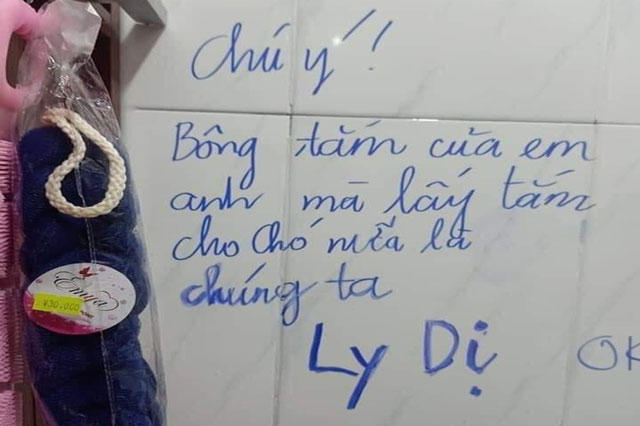 Chú ý!
Bông tắm của em
anh mà lấy tắm
cho chó nữa là
chúng ta
Ly Dị
OK
Emyja
¥30.000